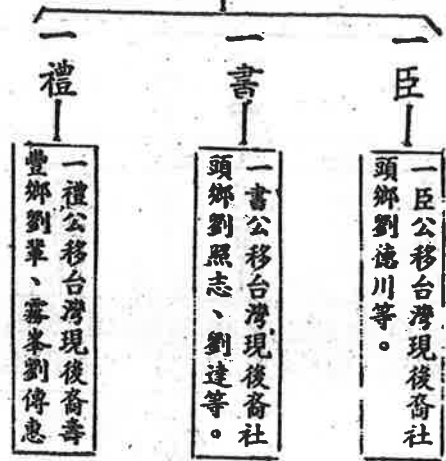 一臣
一臣公移台灣現後裔社
頭鄉劉德川等。
一書
一書公移台灣現後裔社
頭鄉劉照志、劉達等。
一禮
一禮公移台灣現後裔壽
豐鄉劉羣、霧峯劉傳惠